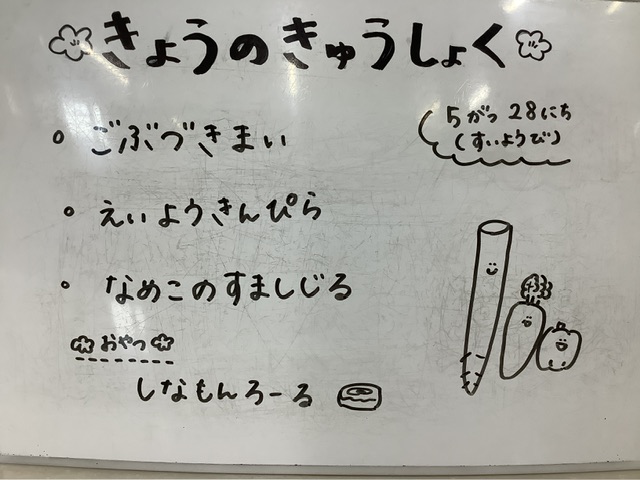 きょうのきゅうしょく
5がつ 28にち
(すいようび)
ごぶづきまい
えいようきんぴら
なめこのすましじる
おやつ
しなもんろーる